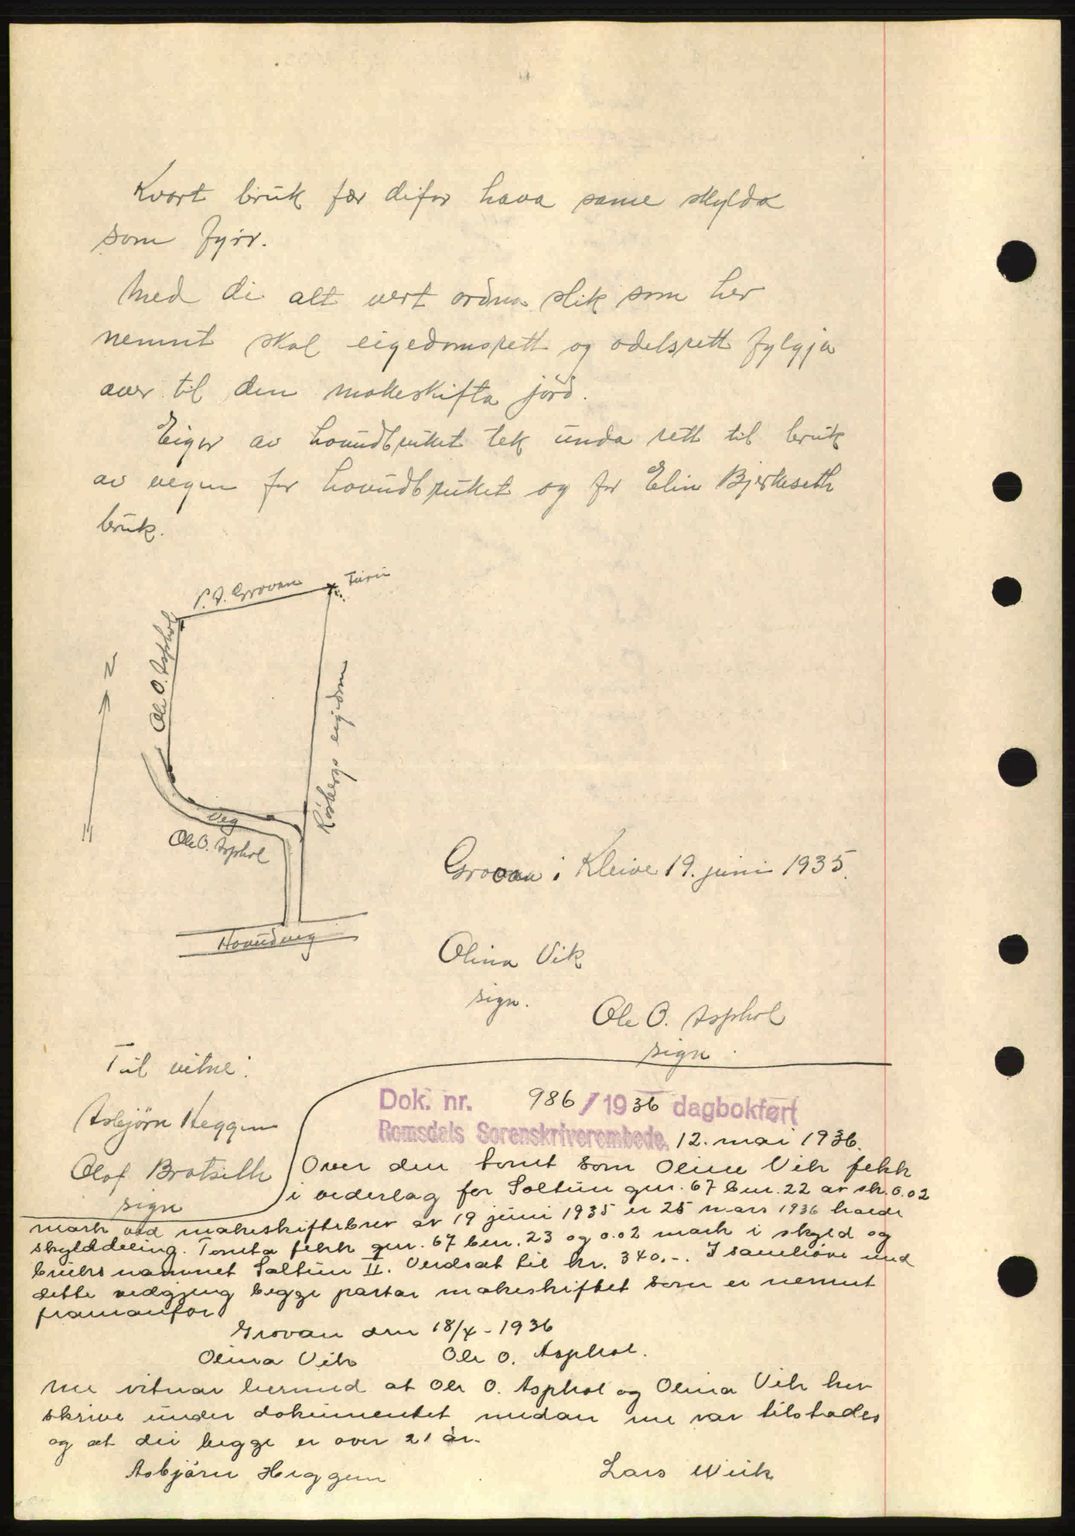 Kvort bruk fær difor hava same skylda
som fyrr.
Med di alt vert ordna slik som her
nemnt skal eigedomsrett og odelsrett fylgja
aver til den makeskifta jord.
Eigar av hovudbruket tek unda rett til bruk
av vegen for hovudbruket og for Elin Bjerkeseth
bruk.
P. A. Grovan
Furu
Ole O. Asphol
N
Røsbergs eigedom
Veg
Ole O. Asphol
Hovudveg
Grovan i Kleive 19. juni 1935.
Olina Vik
sign.
Ole O. Asphol
sign.
Til vitne:
Asbjørn Heggem
Olaf Bratseth
sign
Dok. nr. 986/1936 dagbokført
Romsdals Sorenskriverembede, 12. mai 1936.
Over den tomt som Olina Vik fekk
i vederlag for Soltun gnr. 67 bnr. 22 av sk. 0.02
mark ved makeskiftebrev av 19 juni 1935 er 25 mars 1936 halde
skylddeling. Tomta fekk gnr. 67 bnr. 23 og 0.02 mark i skyld og
bruksnamnet Soltun II. Verdsat til kr. 340.-. I samhøve med
dette vedgjeng begge partar makeskiftet som er nemnt
framanfor
Grovan den 18/4-1936
Olina Vik Ole O. Asphol.
Me vitnar hermed at Ole O. Asphol og Olina Vik hev
skrive under dokumentet medan me var tilstades
og at dei begge er over 21 år.
Asbjørn Heggem Lars Wiik